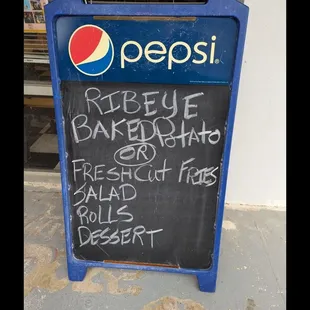 pepsi
RIBEYE
BAKED POTATO
OR
FRESH Cut FRIES
SALAD
ROLLS
DESSERT